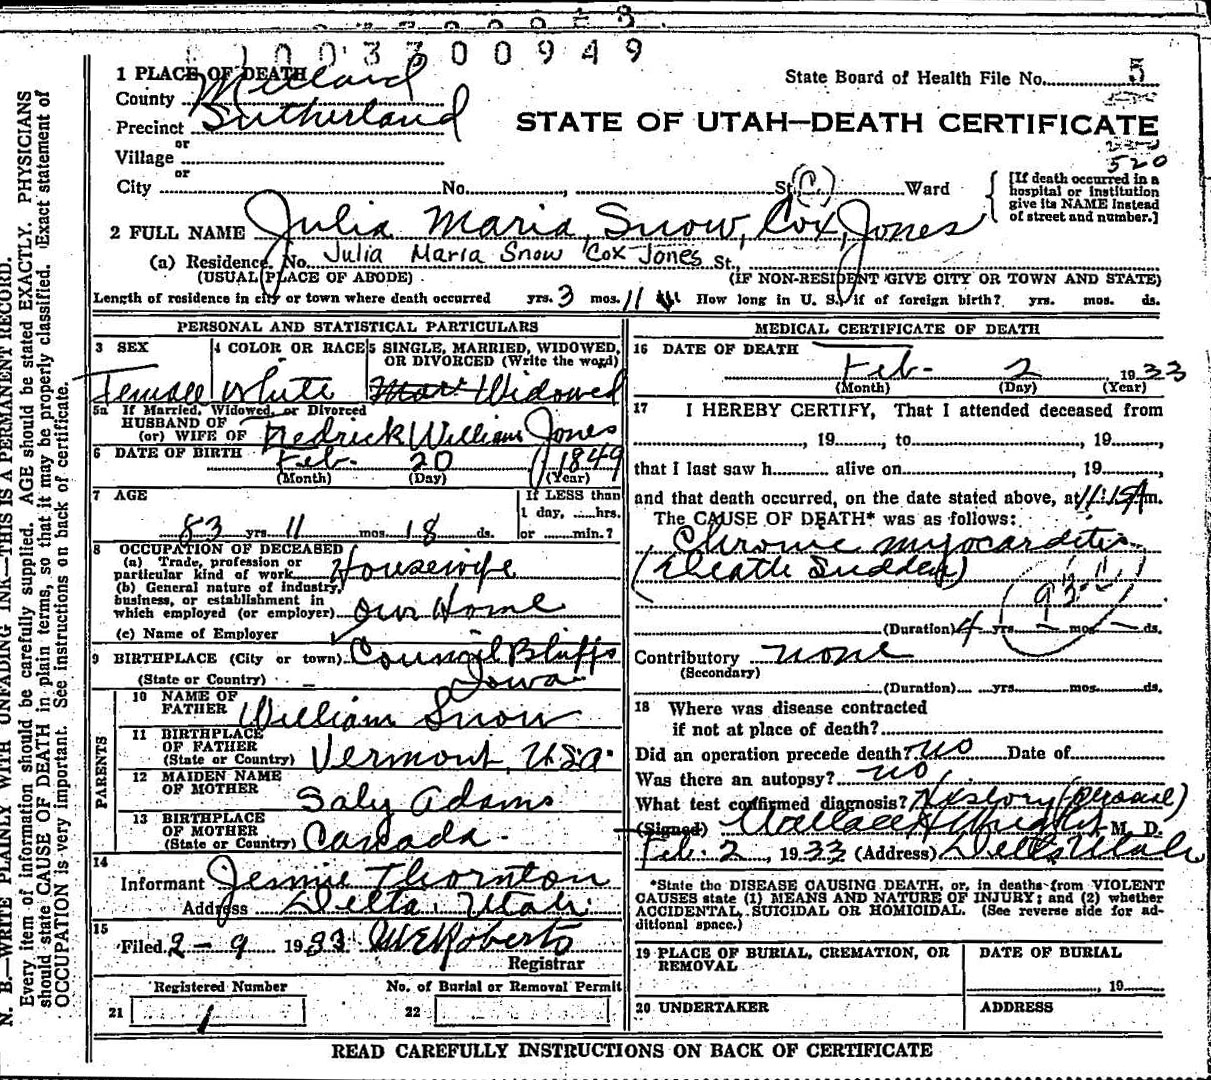 1003700949
1 PLACE OF DEATH
State Board of Health File No. 5
County Millard
Precinct Sutherland
STATE OF UTAH—DEATH CERTIFICATE
or
Village
520
or
City No. , St. (C.) Ward
[If death occurred in a
hospital or institution
give its NAME instead
of street and number.]
2 FULL NAME Julia Maria Snow, Cox, Jones
(a) Residence. No. Julia Maria Snow Cox Jones St.,
(USUAL PLACE OF ABODE) (IF NON-RESIDENT GIVE CITY OR TOWN AND STATE)
Length of residence in city or town where death occurred yrs. 3 mos. 11 How long in U. S. if of foreign birth? yrs. mos. ds.
PERSONAL AND STATISTICAL PARTICULARS
3 SEX 4 COLOR OR RACE 5 SINGLE, MARRIED, WIDOWED,
OR DIVORCED (Write the word)
Female White Mar Widowed
5a If Married, Widowed, or Divorced
HUSBAND OF
(or) WIFE OF Fredrick William Jones
6 DATE OF BIRTH Feb. 20 1849
(Month) (Day) (Year)
7 AGE If LESS than
1 day, ......hrs.
83 yrs. 11 mos. 18 ds. or ......min.?
8 OCCUPATION OF DECEASED
(a) Trade, profession or
particular kind of work Housewife
(b) General nature of industry,
business, or establishment in
which employed (or employer) own Home
(c) Name of Employer
9 BIRTHPLACE (City or town) Council Bluffs
(State or Country) Iowa
PARENTS
10 NAME OF
FATHER William Snow
11 BIRTHPLACE
OF FATHER
(State or Country) Vermont, U.S.A.
12 MAIDEN NAME
OF MOTHER Saly Adams
13 BIRTHPLACE
OF MOTHER
(State or Country) Canada
14
Informant Jennie Thornton
Address Delta, Utah
15
Filed 2-9 1933 M E Roberts
Registrar
Registered Number No. of Burial or Removal Permit
21 1 22
MEDICAL CERTIFICATE OF DEATH
16 DATE OF DEATH
Feb. 2 1933
(Month) (Day) (Year)
17 I HEREBY CERTIFY, That I attended deceased from
, 19 , to , 19 ,
that I last saw h alive on , 19 ,
and that death occurred, on the date stated above, at 11:15 A m.
The CAUSE OF DEATH* was as follows:
Chronic myocarditis
(Death Sudden)
93-
(Duration) 4 yrs. — mos. — ds.
Contributory none
(Secondary)
(Duration) yrs. mos. ds.
18 Where was disease contracted
if not at place of death?
Did an operation precede death? no Date of
Was there an autopsy? no
What test confirmed diagnosis? History (personal)
(Signed) Wallace H Wright M. D.
Feb. 2, 1933 (Address) Delta Utah
*State the DISEASE CAUSING DEATH, or, in deaths from VIOLENT
CAUSES state (1) MEANS AND NATURE OF INJURY; and (2) whether
ACCIDENTAL, SUICIDAL OR HOMICIDAL. (See reverse side for ad-
ditional space.)
19 PLACE OF BURIAL, CREMATION, OR
REMOVAL
DATE OF BURIAL
, 19
20 UNDERTAKER ADDRESS
READ CAREFULLY INSTRUCTIONS ON BACK OF CERTIFICATE
N. B.—WRITE PLAINLY WITH UNFADING INK—THIS IS A PERMANENT RECORD.
Every item of information should be carefully supplied. AGE should be stated EXACTLY. PHYSICIANS
should state CAUSE OF DEATH in plain terms, so that it may be properly classified. Exact statement of
OCCUPATION is very important. See instructions on back of certificate.